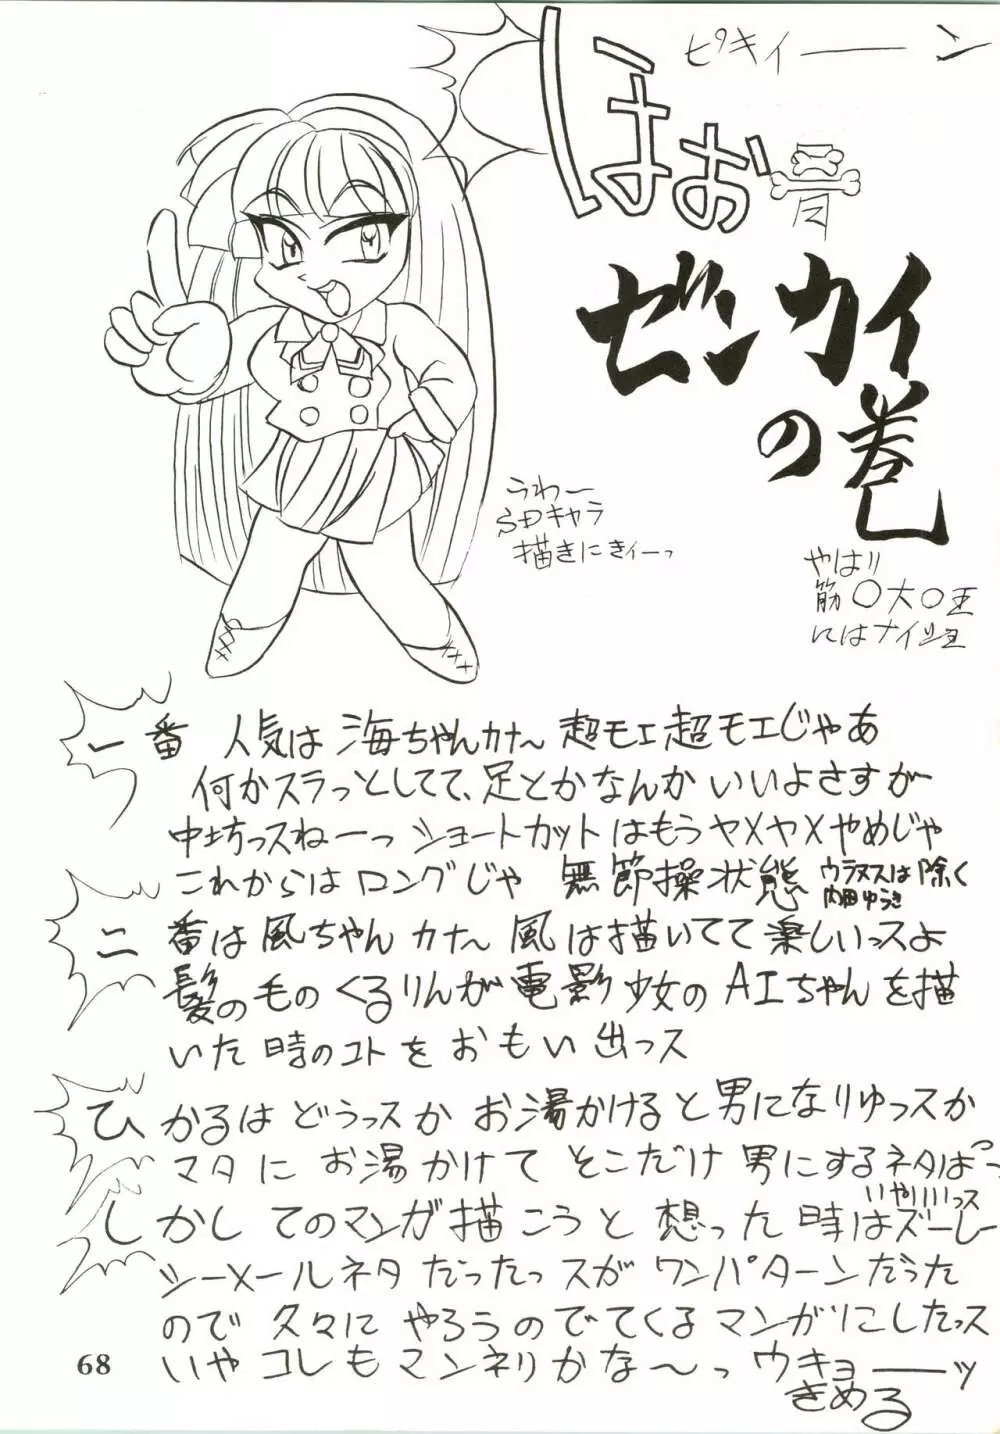 ピキィーーン
ほお骨
ゼンカイ
の巻
うわー
SDキャラ
描きにきぃーっ
やはり
筋〇大〇王
にはナイショ
一番 人気は海ちゃんカナ〜超モエ超モエじゃあ
何かスラっとしてて、足とかなんか いいよさすが
中坊っスねーっ ショートカットはもうヤメヤメやめじゃ
これからは ロングじゃ 無節操状態 ウラヌスは除く
内田ゆうき
二番は風ちゃん カナ〜 風は描いてて楽しいっスよ
髪の毛の くるりんが電影少女のAIちゃんを描
いた時のコトをおもい出っス
ひかるは どうっスか お湯かけると男になりゆっスか
マタに お湯かけて そこだけ男にするネタはっ
いやいいっス
しかし てのマンガ描こうと 想った時はズーレー
シーメールネタ だったっスが ワンパターンだった
ので 久々に やろうのでてくるマンガにしたっス
いや コレも マンネリかな〜っ ウキョーーッ
きめる
68